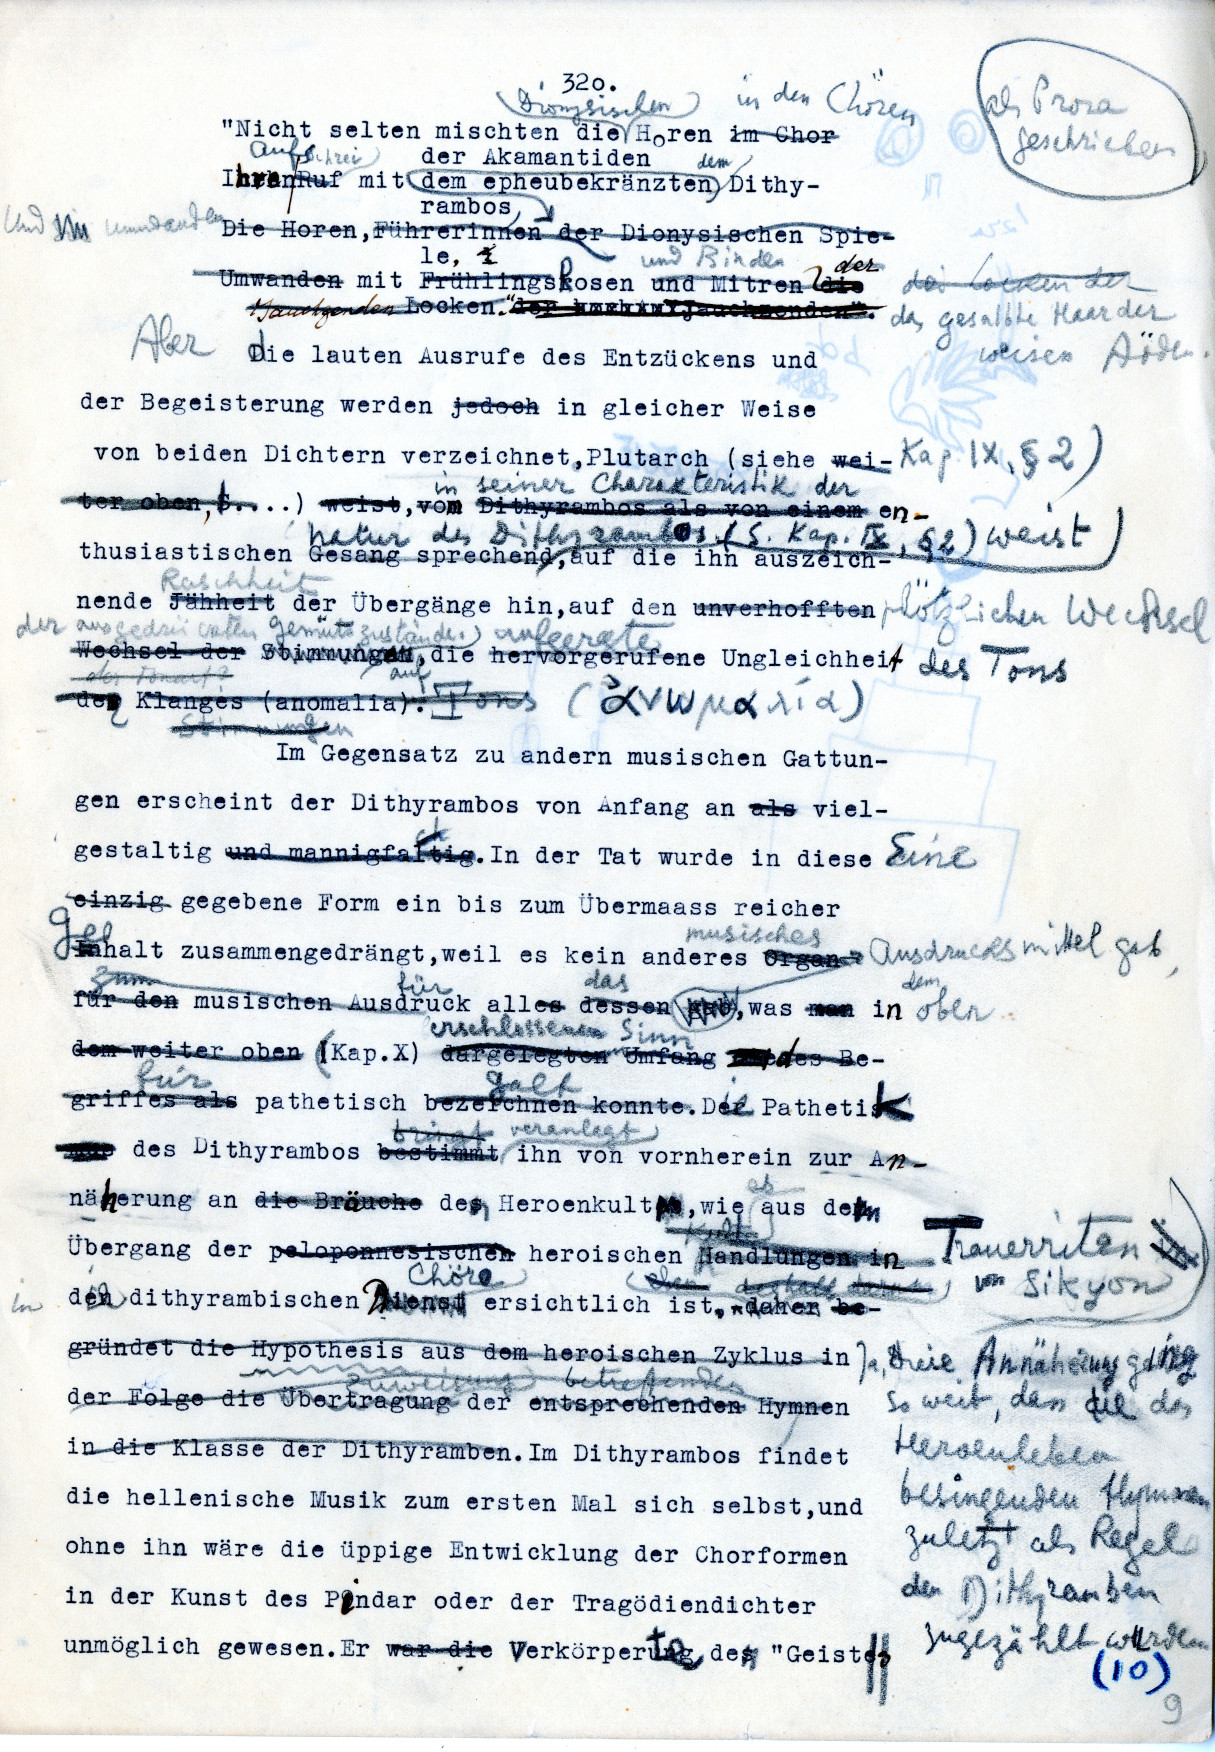 320.
(Dionysischen) in den Chören
als Prosa
geschrieben
"Nicht selten mischten die Horen im Chor
der Akamantiden
Aufschrei) dem
Ihren Ruf mit dem epheubekränzten, Dithy-
rambos,
Und umwanden
Die Horen, Führerinnen der Dionysischen Spie-
le,
und Binden der
Umwanden mit Frühlingsrosen und Mitren die
das Locken der
Jauchzenden Locken." der Jauchzenden".
das gesalbte Haar der
weisen Aöden.
Aber die lauten Ausrufe des Entzückens und
der Begeisterung werden jedoch in gleicher Weise
von beiden Dichtern verzeichnet, Plutarch (siehe wei- Kap. IX, § 2)
in seiner Charakteristik der
ter oben, S....) weist, vom Dithyrambos als von einem en-
Natur des Dithyrambos (S. Kap. IX, § 2) weist)
thusiastischen Gesang sprechend, auf die ihn auszeich-
Raschheit
nende Jähheit der Übergänge hin, auf den unverhofften plötzlichen Wechsel
der ausgedrückten Gemütszustände.) aufgeregte
Wechsel der Stimmungen, die hervorgerufene Ungleichheit des Tons
auf
des Klanges (anomalia). Tons (ἀνωμαλία)
Stimmungen
Im Gegensatz zu andern musischen Gattun-
gen erscheint der Dithyrambos von Anfang an als viel-
gestaltig und mannigfaltig. In der Tat wurde in diese Eine
einzig gegebene Form ein bis zum Übermaass reicher
Gehalt
musisches
Inhalt zusammengedrängt, weil es kein anderes Organ Ausdrucksmittel gab,
zum für das dem
für den musischen Ausdruck alles dessen gab, was man in oben
erschlossenen Sinn
dem weiter oben (Kap.X) dargelegten Umfang des Be-
für galt
griffes als pathetisch bezeichnen konnte. Die Pathetik
bringt veranlagt
des Dithyrambos bestimmt ihn von vornherein zur An-
näherung an die Bräuche des Heroenkults, wie es aus dem
Kult
Übergang der peloponnesischen heroischen Handlungen in Trauerriten
von Sikyon
Chöre
in den dithyrambischen Dienst ersichtlich ist, daher be-
gründet die Hypothesis aus dem heroischen Zyklus in
Ja, diese Annäherung ging
Zuweisung betreffenden
der Folge die Übertragung der entsprechenden Hymnen
so weit, dass die das
in die Klasse der Dithyramben. Im Dithyrambos findet
Heroenleben
die hellenische Musik zum ersten Mal sich selbst, und
besingenden Hymnen
ohne ihn wäre die üppige Entwicklung der Chorformen
zuletzt als Regel
in der Kunst des Pindar oder der Tragödiendichter
den Dithyramben
unmöglich gewesen. Er war die Verkörperung des "Geistes
zugezählt wurden
(10)
9